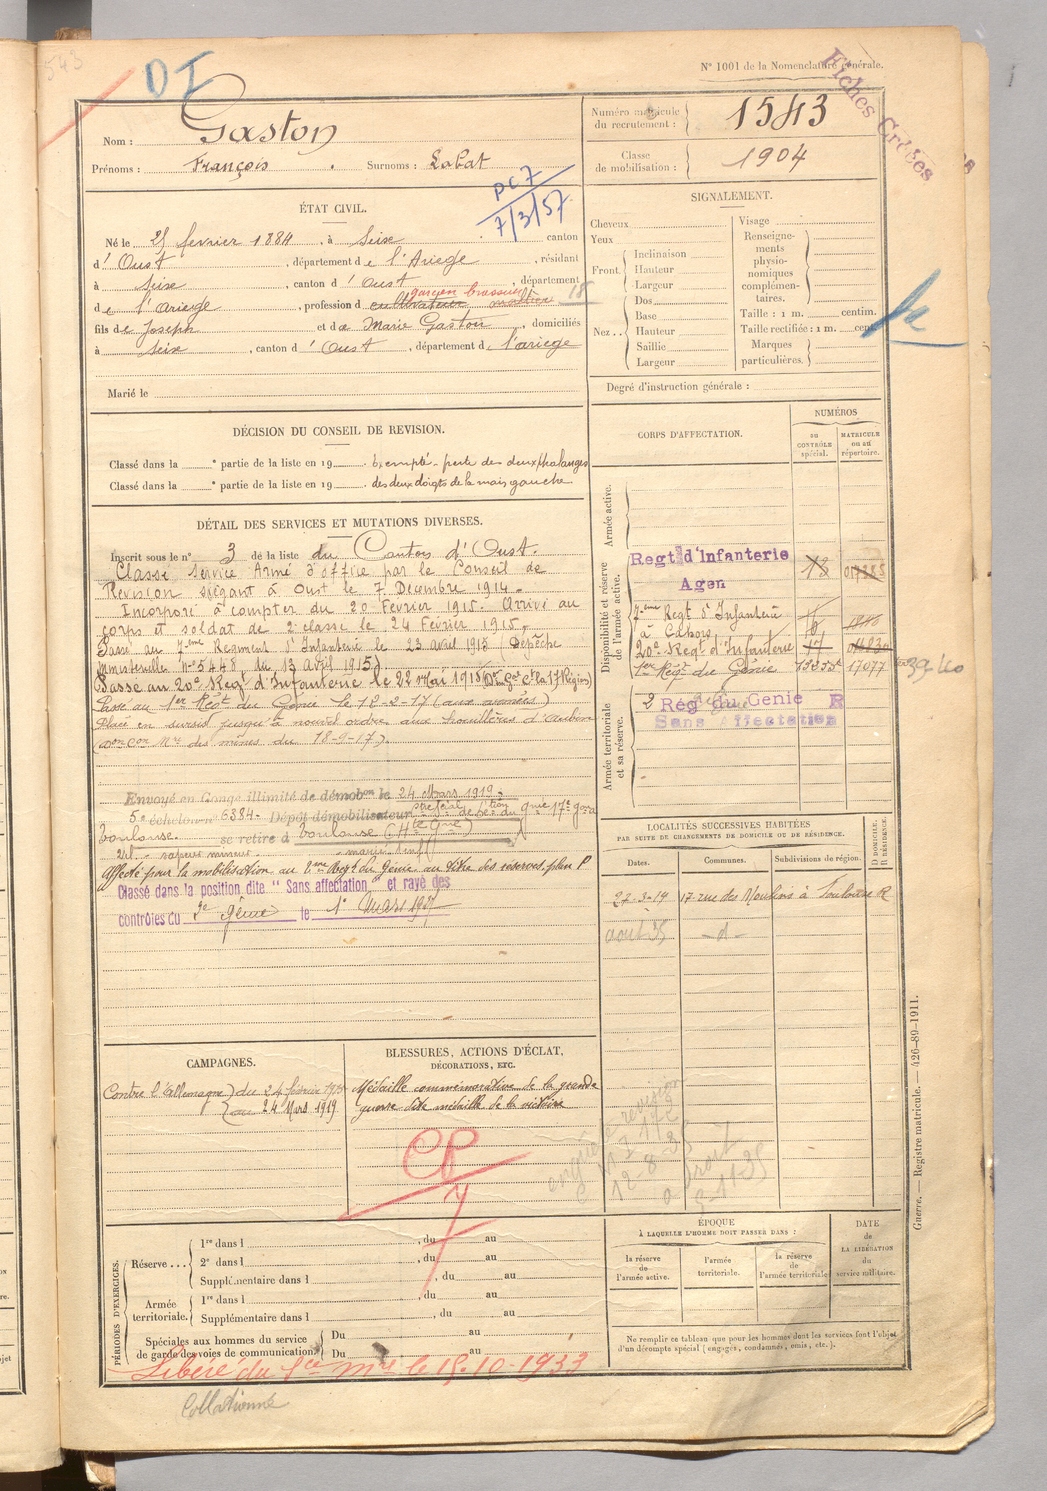 543
D I
N° 1001 de la Nomenclature générale.
Fiches Créées
Nom : Gaston
Prénoms : François . Surnoms : Labat
Numéro matricule du recrutement : 1543
Classe de mobilisation : 1904
DC7
7/3/57
ÉTAT CIVIL.
Né le 25 fevrier 1884 , à Seix canton
d' Oust , département de l'Ariege , résidant
à Seix , canton d' Oust , département
de l'ariege , profession de cultivateur garçon brasseur 18
fils de Joseph et de Marie Gaston , domiciliés
à Seix , canton d' Oust , département de l'ariege
Marié le
SIGNALEMENT.
Cheveux
Yeux
Front
Inclinaison
Hauteur
Largeur
Nez
Dos
Base
Hauteur
Saillie
Largeur
Visage
Renseignements physionomiques complémentaires.
Taille : 1 m. centim.
Taille rectifiée : 1 m. cent.
Marques particulières.
Degré d'instruction générale :
DÉCISION DU CONSEIL DE REVISION.
Classé dans la e partie de la liste en 19 Exempté - perte des deux phalanges
Classé dans la e partie de la liste en 19 des deux doigts de la main gauche
DÉTAIL DES SERVICES ET MUTATIONS DIVERSES.
Inscrit sous le n° 3 de la liste du Canton d'Oust.
Classé Service Armé d'office par le Conseil de
Revision siégant à Oust le 7 Decembre 1914.
Incorporé à compter du 20 Fevrier 1915. Arrivé au
corps et soldat de 2e classe le 24 Fevrier 1915.
Passé au 7eme Regiment d'Infanterie le 23 avril 1915 (Depêche
ministerielle n° 5448 du 13 avril 1915)
Passé au 20e Regt d'Infanterie le 22 mai 1915 (On Gal Ct la 17 Région)
Passé au 1er Régt du Génie le 12-2-17 (aux armées)
Placé en sursis jusqu'à nouvel ordre aux houillères d'aubin
(don con Mre des mines du 18-9-17)
Envoyé en Congé illimité de démobon le 24 Mars 1919
5e échelon n° 6384. Dépôt démobilisateur
Toulouse. se retire à Toulouse (Hte Gne)
affecté pour la mobilisation au 2eme Regt du Génie au titre des réserves plan P
Classé dans la position dite " Sans affectation " et rayé des
contrôles du 2e Génie le 1er Mars 1927
CORPS D'AFFECTATION.
NUMÉROS
au CONTRÔLE spécial.
MATRICULE ou au répertoire.
Armée active.
Disponibilité et réserve de l'armée active.
Regt d'Infanterie
Agen 18
7eme Regt d'Infanterie
à Cahors
20e Regt d'Infanterie
1er Regt du Génie 17077
Armée territoriale et sa réserve.
2 Rég du Genie R
Sans Affectation
LOCALITÉS SUCCESSIVES HABITÉES
PAR SUITE DE CHANGEMENTS DE DOMICILE OU DE RÉSIDENCE.
Dates. Communes. Subdivisions de région. D DOMICILE. R RÉSIDENCE.
27-3-19 17 rue des Moulins à Toulouse R
aout 35 - d -
CAMPAGNES.
Contre l'allemagne du 24 février 1915
au 24 Mars 1919
BLESSURES, ACTIONS D'ÉCLAT,
DÉCORATIONS, ETC.
Médaille commémorative de la grande
guerre dite médaille de la victoire
CP
7
12-8-35
PÉRIODES D'EXERCICES.
Réserve ...
1re dans l , du au
2e dans l , du au
Supplémentaire dans l , du au
Armée territoriale.
1re dans l , du au
Supplémentaire dans l , du au
Spéciales aux hommes du service de garde des voies de communication.
Du au
Du au
Libéré du Sce mre le 15-10-1933
ÉPOQUE
À LAQUELLE L'HOMME DOIT PASSER DANS :
la réserve de l'armée active.
l'armée territoriale.
la réserve de l'armée territoriale.
DATE de LA LIBÉRATION du service militaire.
Ne remplir ce tableau que pour les hommes dont les services font l'objet
d'un décompte spécial (engagés, condamnés, omis, etc.).
Guerre. — Registre matricule. — 426-89-1911.
Collationné